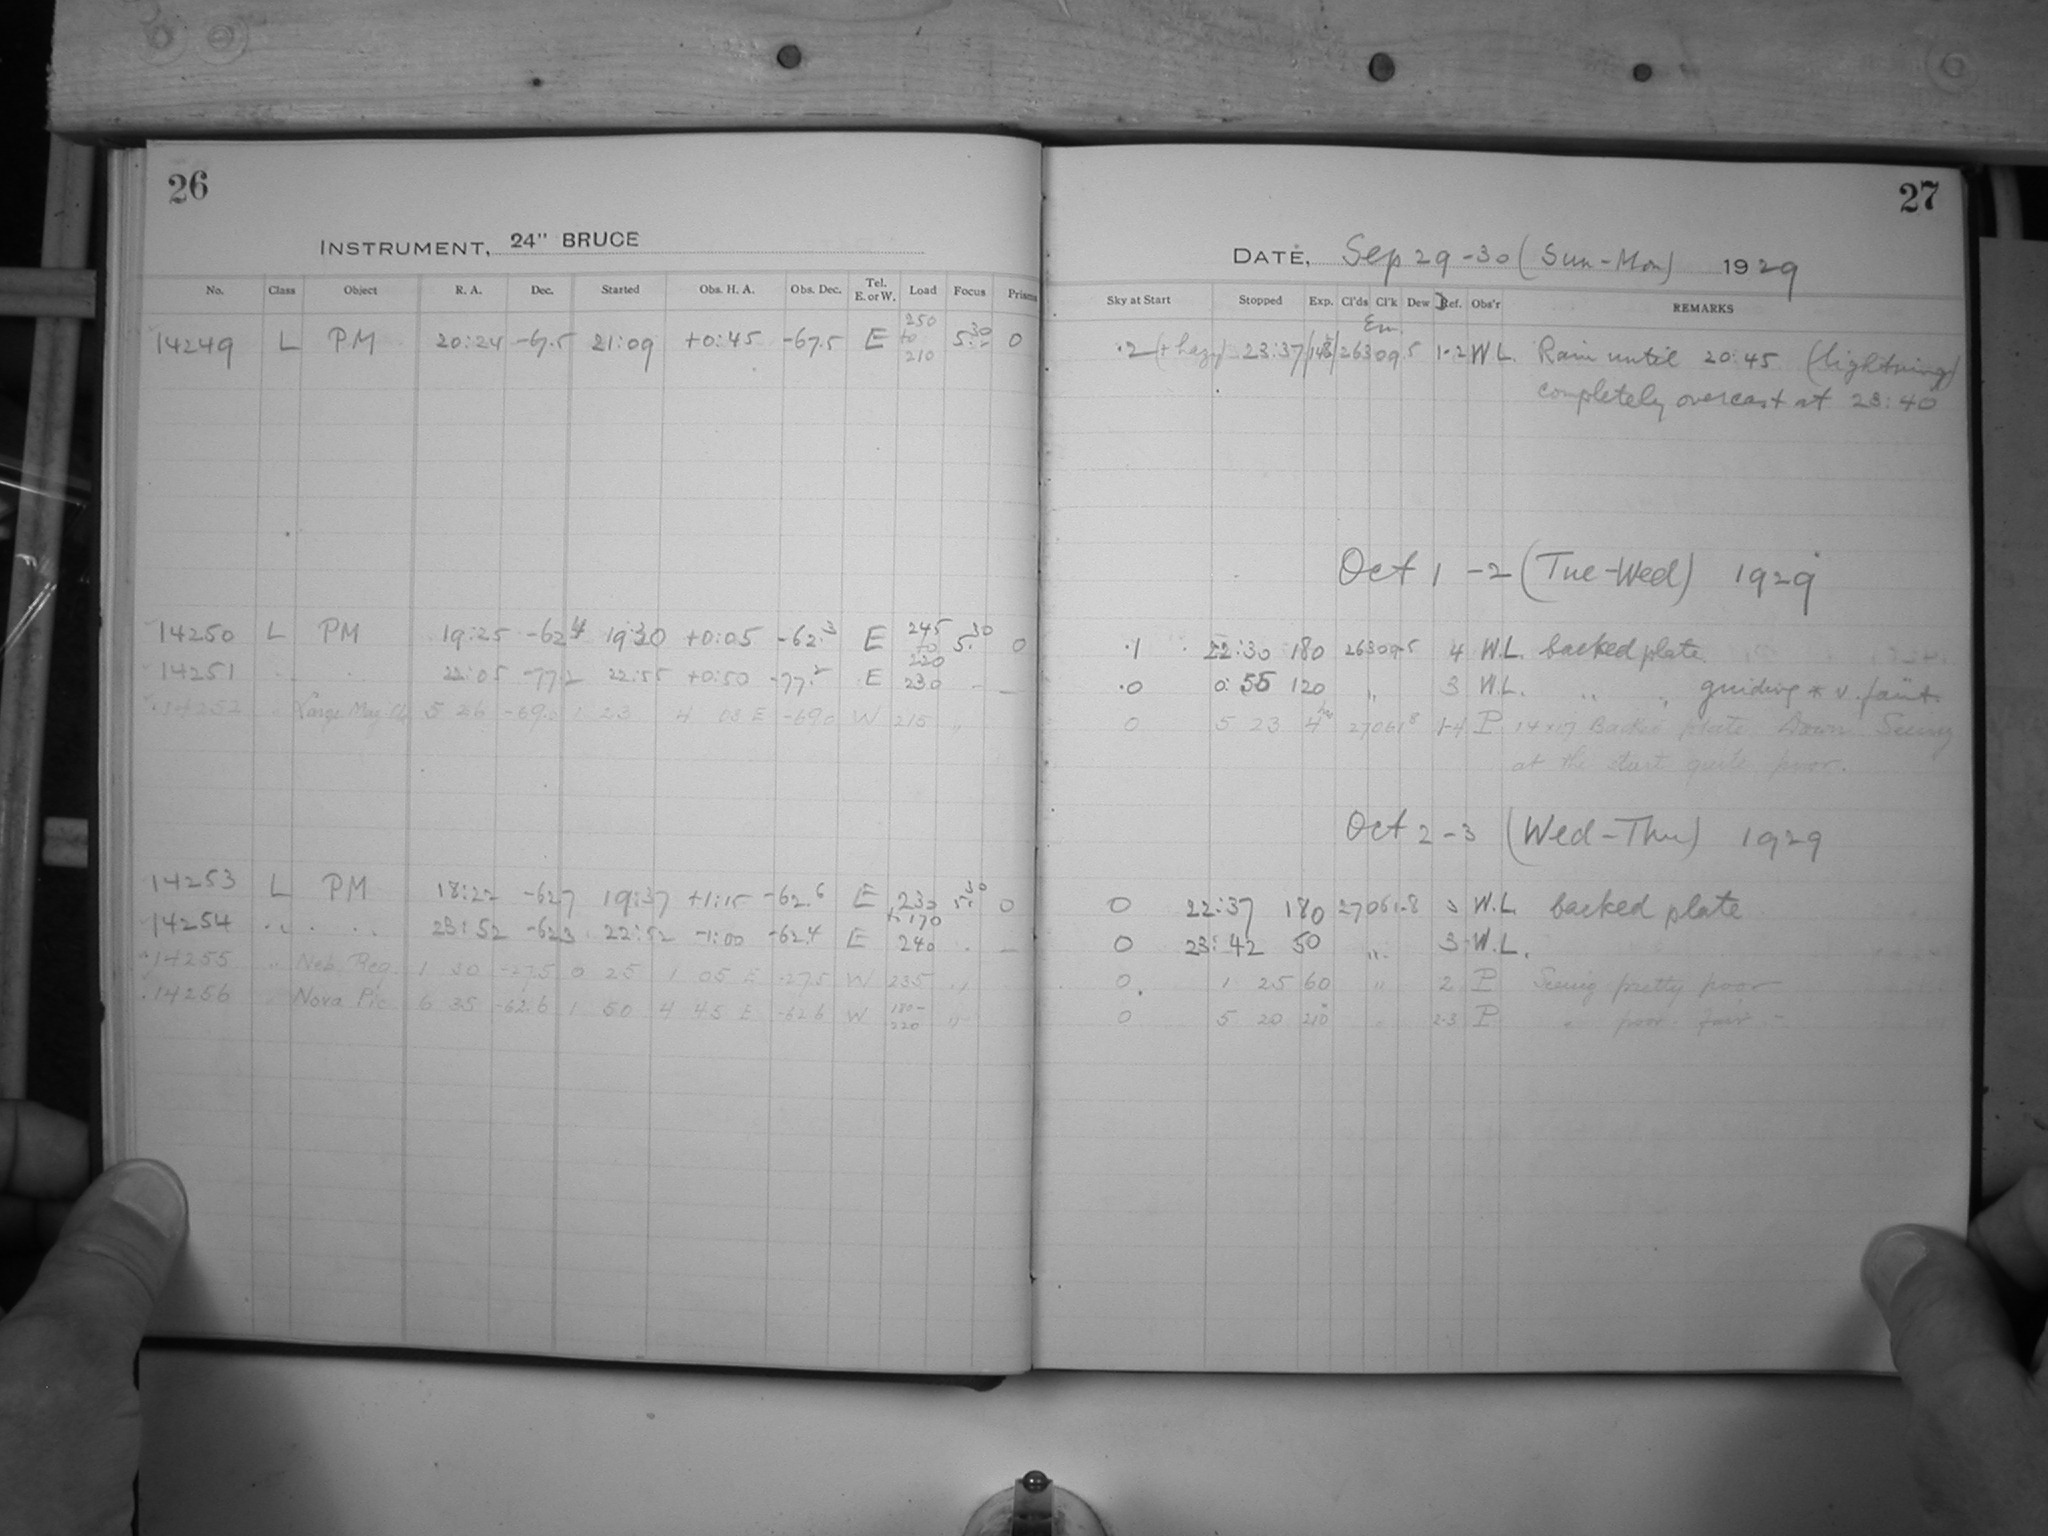 26
INSTRUMENT, 24" BRUCE
No. Class Object R. A. Dec. Started Obs. H. A. Obs. Dec. Tel. E. or W. Load Focus Prism
14249 L PM 20:24 -67.5 21:09 +0:45 -67.5 E 250 to 210 5.30 0
14250 L PM 19:25 -62.4 19:30 +0:05 -62.3 E 245 to 220 5.30 0
14251 22:05 -77.2 22:55 +0:50 -77.2 E 230
14252 Large Mag Cl 5 26 -69.0 1 23 4 03 E -69.0 W 215 "
14253 L PM 18:22 -62.7 19:37 +1:15 -62.6 E 230 to 170 5.30 0
14254 " " 23:52 -62.3 22:52 -1:00 -62.4 E 240
14255 " Neb. Reg. 1 30 -27.5 0 25 1 05 E -27.5 W 235 "
14256 " Nova Pic 6 35 -62.6 1 50 4 45 E -62.6 W 180-220 "
27
DATE, Sep 29-30 (Sun-Mon) 1929
Sky at Start Stopped Exp. Cl'ds Cl'k Dew Ref. Obs'r REMARKS
Em.
.2 (+ hazy) 23:37 148 26309.5 1-2 W.L. Rain until 20:45 (lightning)
completely overcast at 23:40
Oct 1-2 (Tue-Wed) 1929
.1 22:30 180 26309.5 4 W.L. backed plate
.0 0:55 120 " 3 W.L. " " guiding * v. faint
0 5 23 4 hrs 27061.8 1-4 P 14x17 Backed plate Dawn Seeing
at the start quite poor.
Oct 2-3 (Wed-Thu) 1929
0 22:37 180 27061.8 3 W.L. backed plate
0 23:42 50 " 3 W.L.
0 1 25 60 " 2 P Seeing pretty poor
0 5 20 210 " 2-3 P " poor - fair -